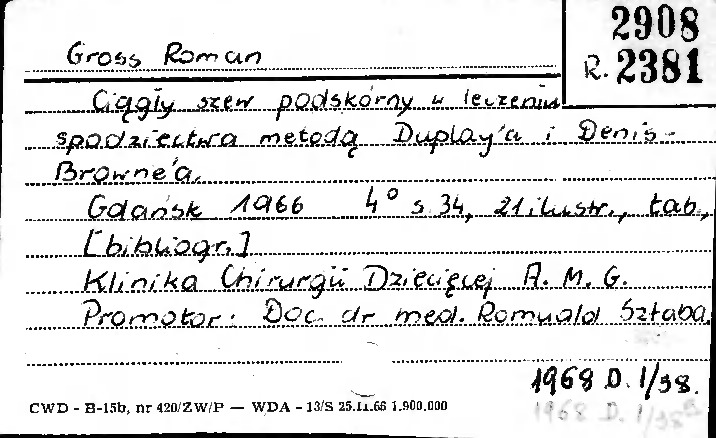 2908
Gross Roman
R. 2381
Ciągły szew podskórny w leczeniu
spodziectwa metodą Duplay'a i Denis-
Browne'a.
Gdańsk 1966 4° s. 34, 21 ilustr., tab.,
[bibliogr.]
Klinika Chirurgii Dziecięcej A. M. G.
Promotor: Doc. dr med. Romuald Sztaba.
1968 D. 1/38.
CWD - B-15b, nr 420/ZW/P — WDA - 13/S 25.II.66 1.900.000
1968 D. 1/38